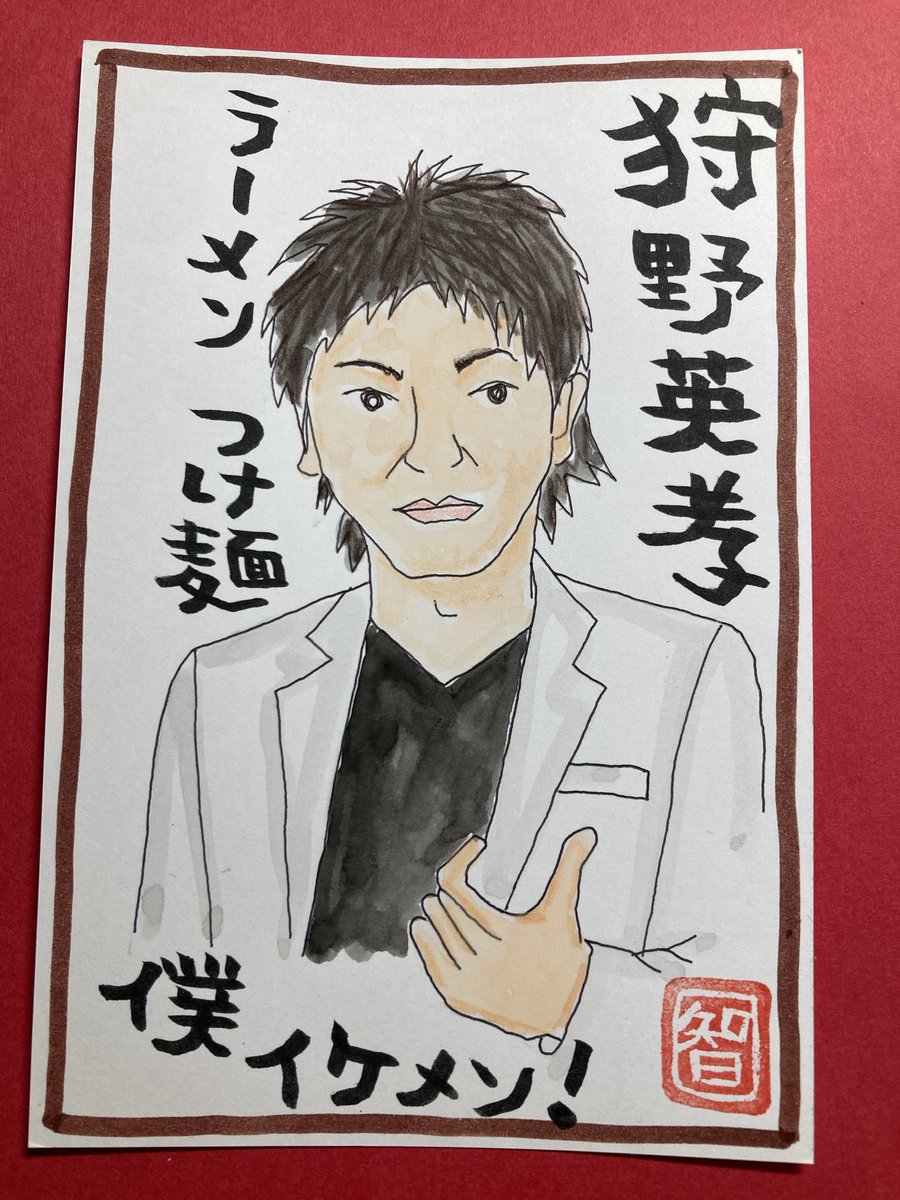 狩野英孝
ラーメン つけ麺
僕イケメン!
智